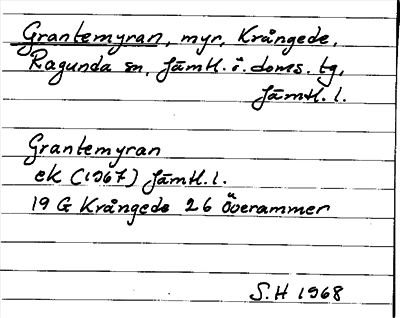 Grantemyran, myr, Krångede,
Ragunda sn, Jämtl. ö. doms. tg,
Jämtl. l.
Grantemyran
ek (1967) Jämtl. l.
19 G Krångede 26 Överammer
S.H 1968